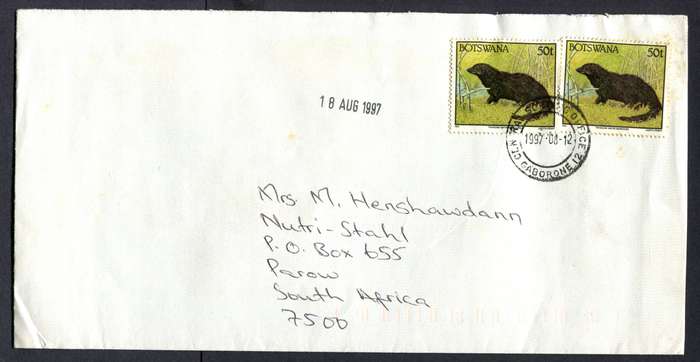 BOTSWANA 50t
BOTSWANA 50t
18 AUG 1997
1997-08-12
GABORONE
Mrs M. Henshawdann
Nutri-Stahl
P.O. Box 655
Parow
South Africa
7500